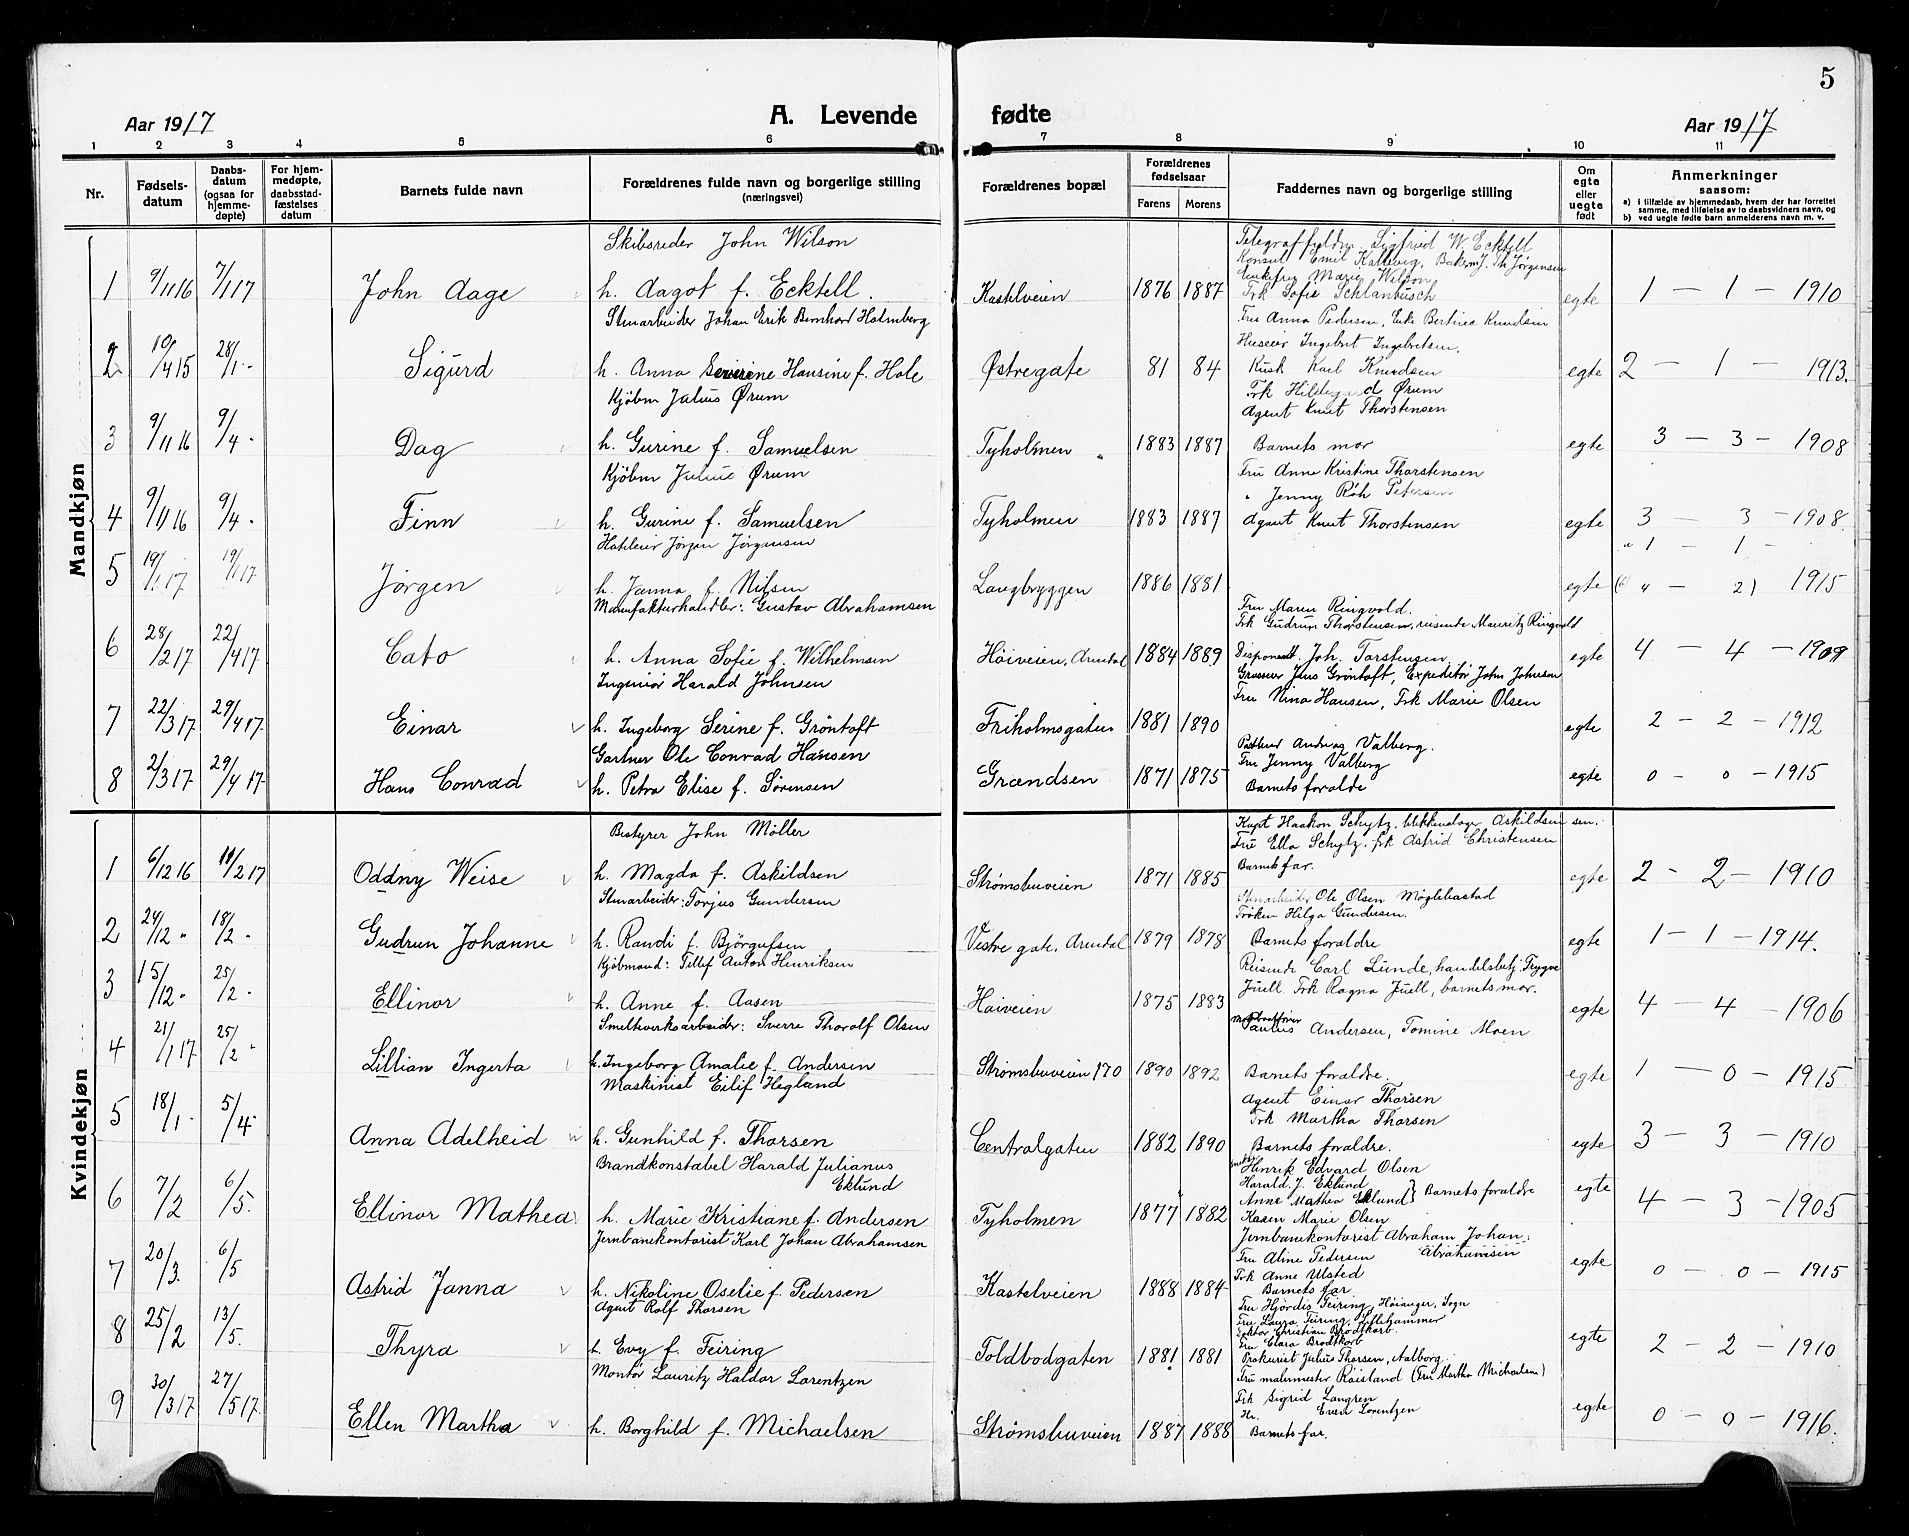 5
Aar 1917 A. Levende fødte Aar 1917
1 2 3 4 5 6 7 8 9 10 11
Nr.
Fødsels-
datum
Daabs-
datum
(ogsaa for
hjemme-
døpte)
For hjem-
medøpte,
daabsstad-
fæstelses
datum
Barnets fulde navn
Forældrenes fulde navn og borgerlige stilling
(næringsvei)
Forældrenes bopæl
Forældrenes
fødselsaar
Farens Morens
Faddernes navn og borgerlige stilling
Om
egte
eller
uegte
født
Anmerkninger
saasom:
a) i tilfælde av hjemmedaab, hvem der har forrettet
samme, med tilføielse av to daabsvidners navn, og
b) ved uegte fødte barn anmelderens navn m. v.
Mandkjøn
Skibsreder John Wilson
1 9/11 16 7/1 17 John Aage h. Aagot f. Ecktell. Kastelveien 1876 1887 egte 1 — 1 — 1910
Sigfried W. Ecktell
Konsul Emil Kallevig, Th Jørgensen
Enkefru Marie Wilson
Frk Sofie Schlanbusch
Stuarbeider Johan Erik Bernhard Holmberg
2 10/4 15 28/1 - Sigurd h. Anna Severine Hansine f. Hole Østregate 81 84 egte 2 — 1 — 1913.
Fru Anna Pedersen, Enke Bertine Knudsen
Huseier Ingebret Ingebretsen.
Kusk Karl Knudsen
Kjøbm Julius Ørum
3 9/11 16 9/4 - Dag h. Gurine f. Samuelsen Tyholmen 1883 1887 egte 3 — 3 — 1908
Frk Hildegard Ørum
Agent Knut Thorstensen
Barnets mor
Kjøbm Julius Ørum
4 9/11 16 9/4 - Finn h. Gurine f. Samuelsen Tyholmen 1883 1887 egte 3 — 3 — 1908.
Fru Anne Kristine Thorstensen
" Jenny Røh Petersen
Agent Knut Thorstensen
Jørgen Jørgensen
5 19/1 17 19/1 17 Jørgen h. Janna f. Nilsen Langbryggen 1886 1881 egte 1915
" 1 — 1 —
4 — 2)
Manufakturhandler: Gustav Abrahamsen
6 28/2 17 22/4 17 Cato h. Anna Sofie f. Wilhelmsen Höiveien, Arendal 1884 1889 egte 4 — 4 — 1909
Fru Maren Ringvold.
Frk Gudrun Thorstensen, reisende Mauritz Ringvold
Disponent. Joh. Torstensen
Ingeniör Harald Johnsen
7 22/3 17 29/4 17. Einar h. Ingeborg Serine f. Gröntoft Friholmsgaten 1881 1890 egte 2 — 2 — 1912
Grosserer Jens Gröntoft, Expeditör John Johnsen
Fru Nina Hansen, Frk Marie Olsen
Gartner Ole Conrad Hansen
8 2/3 17 29/4 17 Hans Conrad h. Petra Elise f. Sörensen Grændsen 1871 1875 egte 0 — 0 — 1915
Postbud Andreas Valberg.
Fru Jenny Valberg
Barnets forælde
Kvindekjøn
Bestyrer John Möller
1 6/12 16 11/2 17 Oddny Weise h. Magda f. Askildsen Strømsbuveien 1871 1885 egte 2 - 2 — 1910
Kapt Haakon Schytz, blikkenslager Askildsen sen.
Fru Ella Schytz, frk Astrid Christensen
Barnets far.
Stuarbeider: Torjus Gundersen
2 24/12 " 18/2 - Gudrun Johanne h. Randi f. Björgufsen Vestre gate, Arendal 1879 1878 egte 1 — 1 — 1914.
Stenarbeider Ole Olsen Møglebastad
Fröken Helga Gundersen.
Barnets forældre
Kjöbmand: Tellef Anton Henriksen
3 15/12 - 25/2 - Ellinor h. Anne f. Aasen Høiveien 1875 1883 egte 4 — 4 — 1906
Reisende Carl Lunde, handelsbetj. Trygve
Juell. Frk Ragna Juell, barnets mor.
Smelteverksarbeider: Sverre Thorolf Olsen
4 21/1 17 25/2 - Lillian Ingerta h. Ingeborg Amalie f. Andersen Strømsbuveien 170 1890 1892 egte 1 — 0 — 1915
Paulus Andersen, Tomine Moen
Barnets forældre.
Maskinist Eilif Hegland
5 18/1 - 5/4 - Anna Adelheid h. Gunhild f. Thorsen Centralgaten 1882 1890 egte 3 — 3 — 1910
Agent Einar Thorsen
Frk Martha Thorsen
Barnets forældre.
Brandkonstabel Harald Julianus
Eklund
6 7/2 6/5. Ellinor Mathea h. Marie Kristiane f. Andersen Tyholmen 1877 1882 egte 4 — 3 — 1905
Henrik Edvard Olsen
Harald J. Eklund
Anne Mathea Eklund } Barnets forældre
Karen Marie Olsen
Jernbanekontorist Karl Johan Abrahamsen
7 20/3. 6/5 Astrid Janna h. Nikoline Oselie f. Pedersen Kastelveien 1888 1884 egte 0 — 0 — 1915
Jernbanekontorist Abraham Johan
Abrahamsen
Fru Aline Pedersen
Frk Anne Ulsted
Barnets far
Agent Rolf Thorsen
8 25/2 13/5. Thyra h. Evy f. Feiring Toldbodgaten 1881 1881 egte 2 — 2 — 1910
Fru Hjördis Feiring, Höianger, Sogn
Fru Laura Feiring, Lillehammer
Christian Brodtkorb.
Fru Clara Brodtkorb
Prokurist Julius Thorsen, Aalborg.
Montör Lauritz Haldor Lorentzen
9 30/3 17 27/5 17. Ellen Martha h. Borghild f. Michaelsen Strømsbuveien 1887 1888 egte 0 — 0 — 1916.
Fru malermester Röisland (Fru Martha Michaelsen)
Frk Sigrid Langren
Hr. Even Lorentzen
Barnets far.